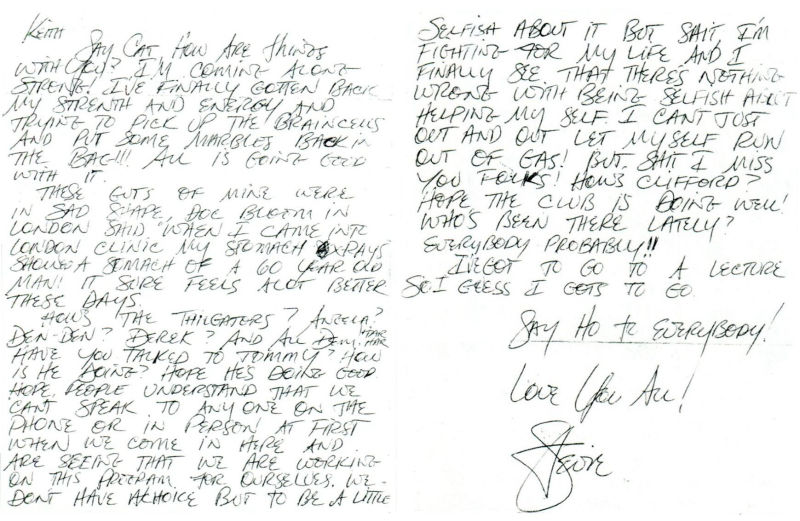 Keith
Say Cat How Are things
with you? I'm coming along
strong! I've finally gotten back
my strenth and energy and
trying to pick up the braincells
and put some marbles back in
the bag!!! All is going good
with it.
These guts of mine were
in sad shape, Doc Bloom in
London said when I came into
London Clinic my stomach xrays
showd a stomach of a 60 year old
man! It sure feels alot better
these days.
How's the Thilgaters? Angela?
Den-Den? Derek? And all dem? Har Har
Have you talked to Tommy? How
is he doing? Hope he's doing good
Hope people understand that we
can't speak to any one on the
phone or in person at first
when we come in here and
are seeing that we are working
on this program for ourselves. We
dont have a choice but to be a little
selfish about it but shit, I'm
fighting for my life and I
finally see that there's nothing
wrong with being selfish about
helping my self. I can't just
out and out let myself run
out of gas! But shit I miss
you folks! How's Clifford?
Hope the club is doing well!
Who's been there lately?
Everybody probably!!
I've got to go to a lecture
so I guess I gots to go.
Say Ho to everybody!
Love You All!
Stevie